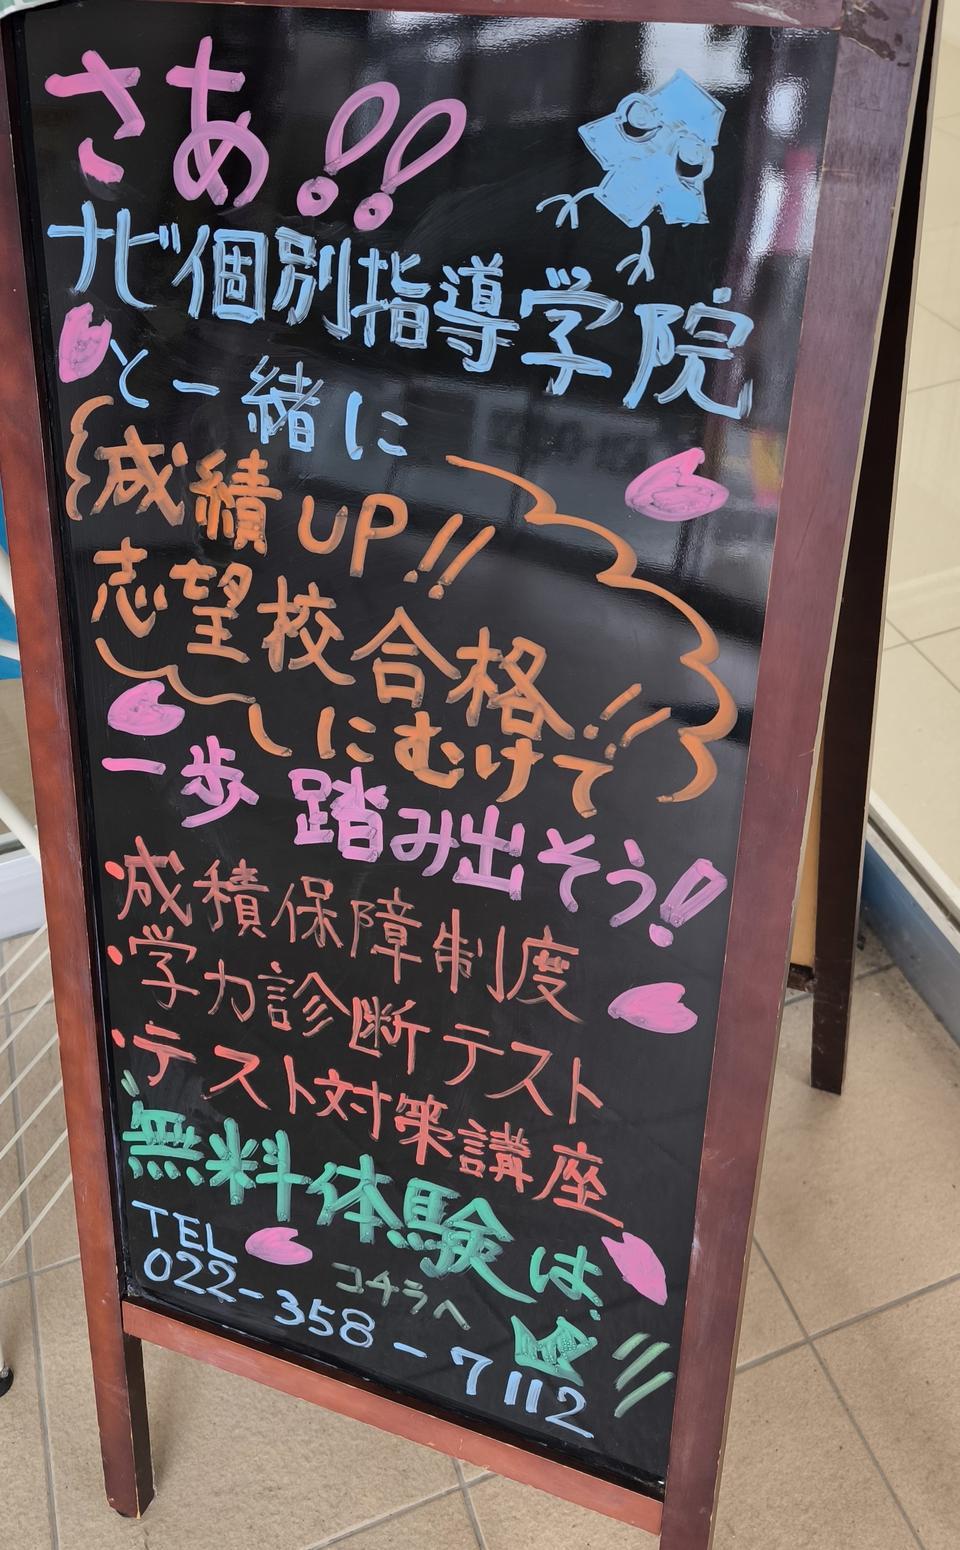 さあ!!
ナビ個別指導学院
と一緒に
成績UP!!
志望校合格!!
にむけて
一歩 踏み出そう!
・成積保障制度
・学力診断テスト
・テスト対策講座
無料体験は
コチラへ
TEL
022-358-7112